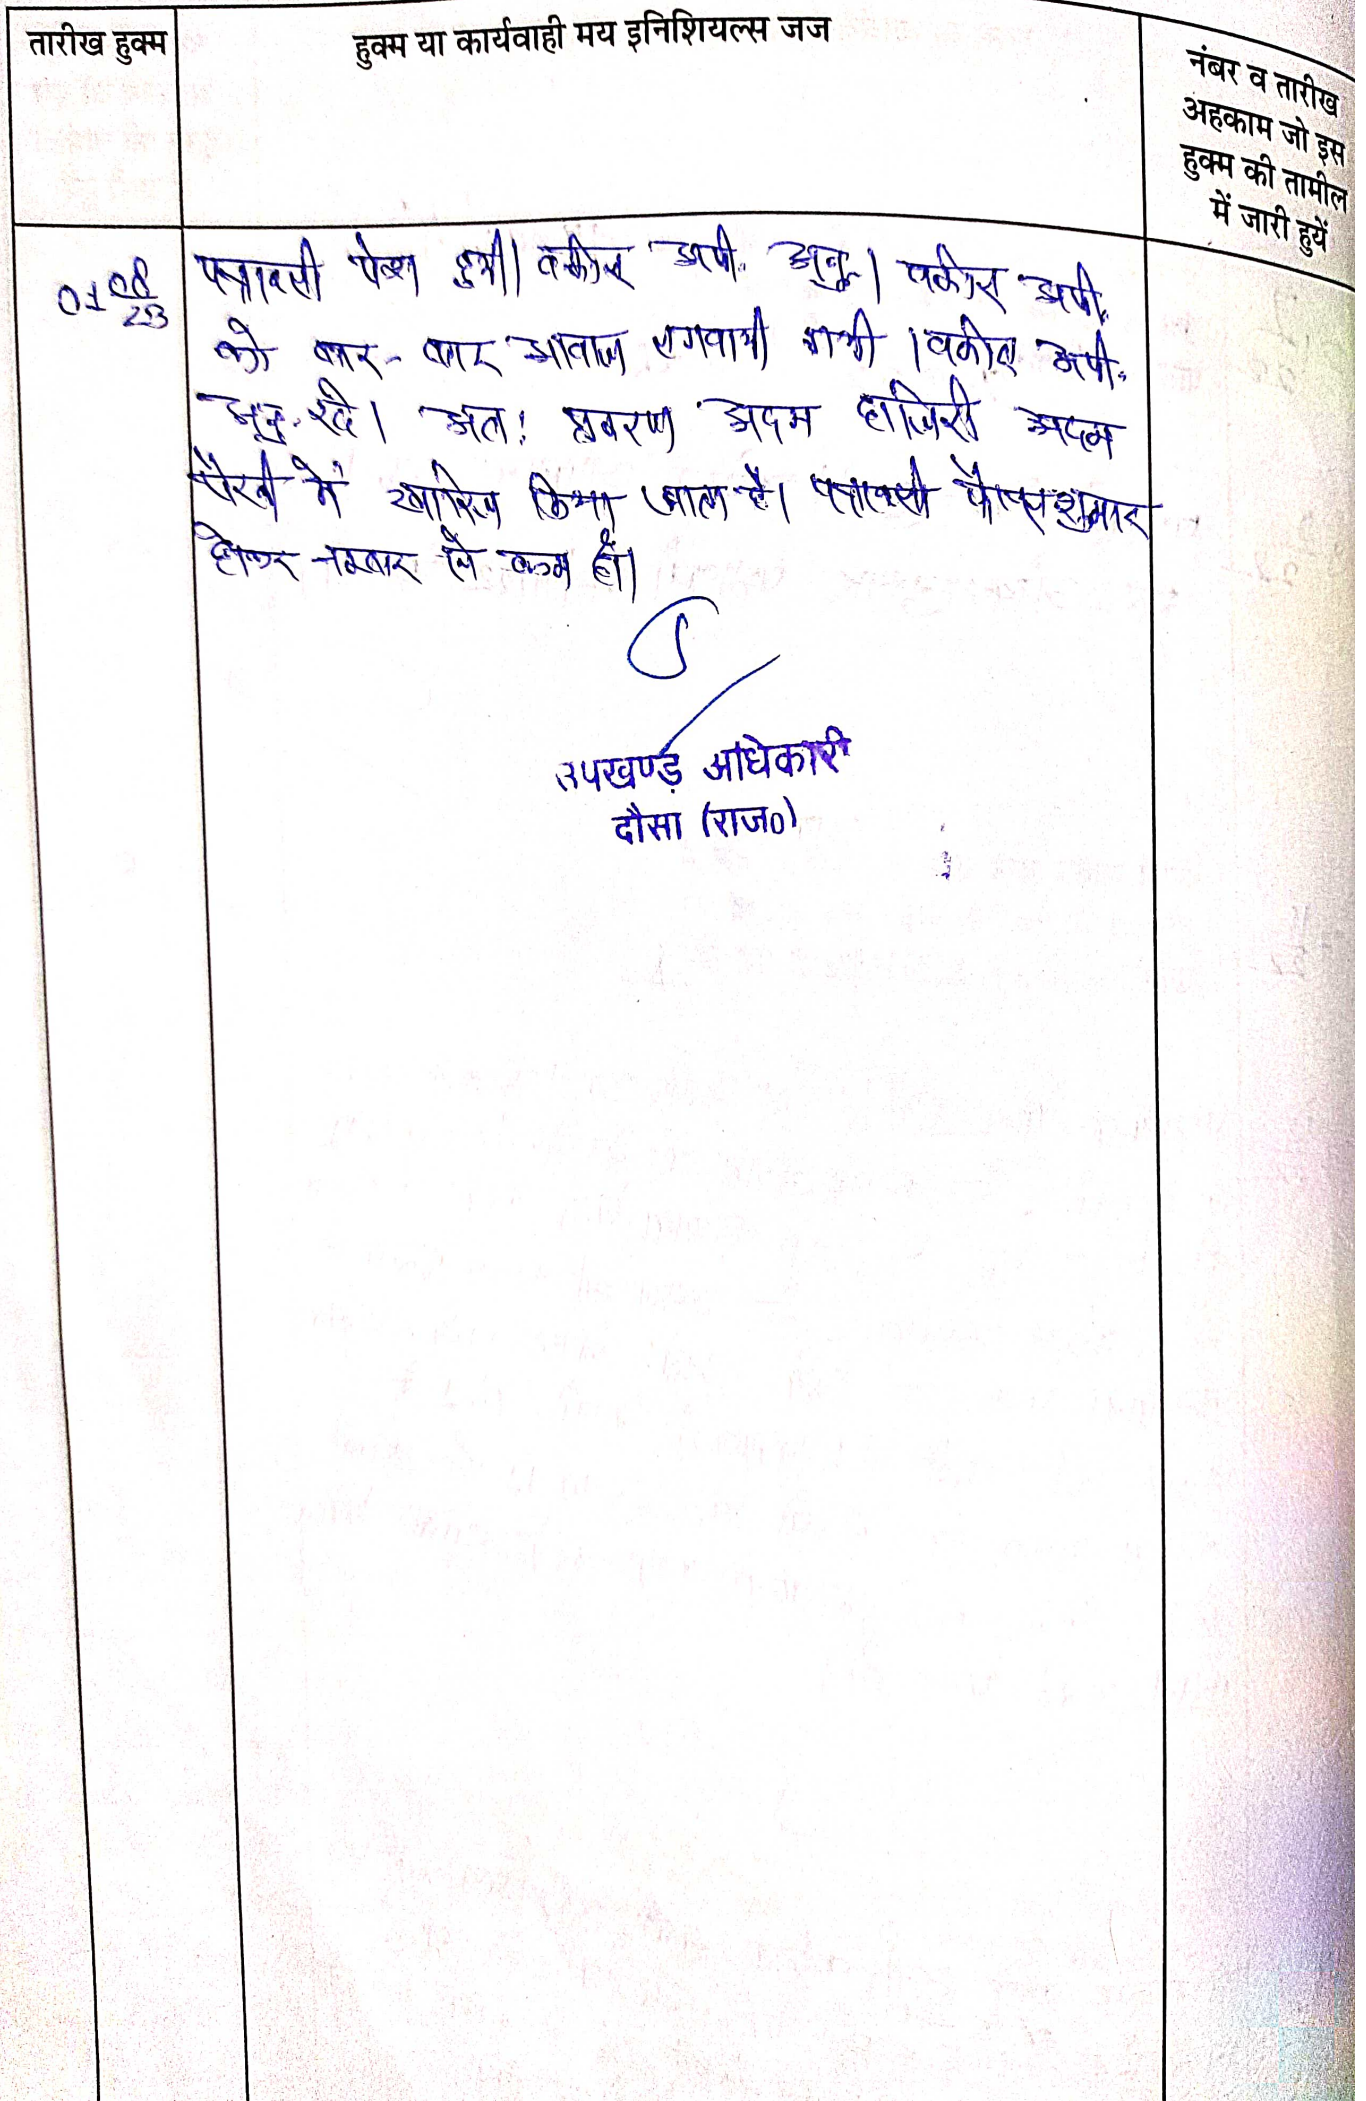 तारीख हुक्म
हुक्म या कार्यवाही मय इनिशियल्स जज
नंबर व तारीख
अहकाम जो इस
हुक्म की तामील
में जारी हुयें
01 08/23
पत्रावली पेश हुयी। वकील अपी. अनु.। वकील अपी.
को बार-बार आवाज लगवायी गयी। वकील अपी.
अनु. रहे। अतः प्रकरण अदम हाजिरी अदम
पैरवी में खारिज किया जाता है। पत्रावली फैसल शुमार
होकर नम्बर से कम हो।
उपखण्ड़ अधिकारी
दौसा (राज०)